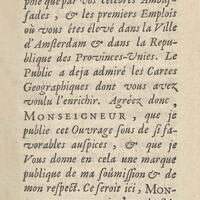 phie que par vos celebres Ambaſ-
ſades, & les premiers Emplois
où vous êtes élevé dans la Ville
d'Amſterdam & dans la Repu-
blique des Provinces-Unies. Le
Public a deja admiré les Cartes
Geographiques dont vous avez
voulu l'enrichir. Agréez donc,
MONSEIGNEUR, que je
publie cet Ouvrage ſous de ſi fa-
vorables auſpices, & que je
Vous donne en cela une marque
publique de ma ſoûmiſſion & de
mon reſpect. Ce ſeroit ici, MON-